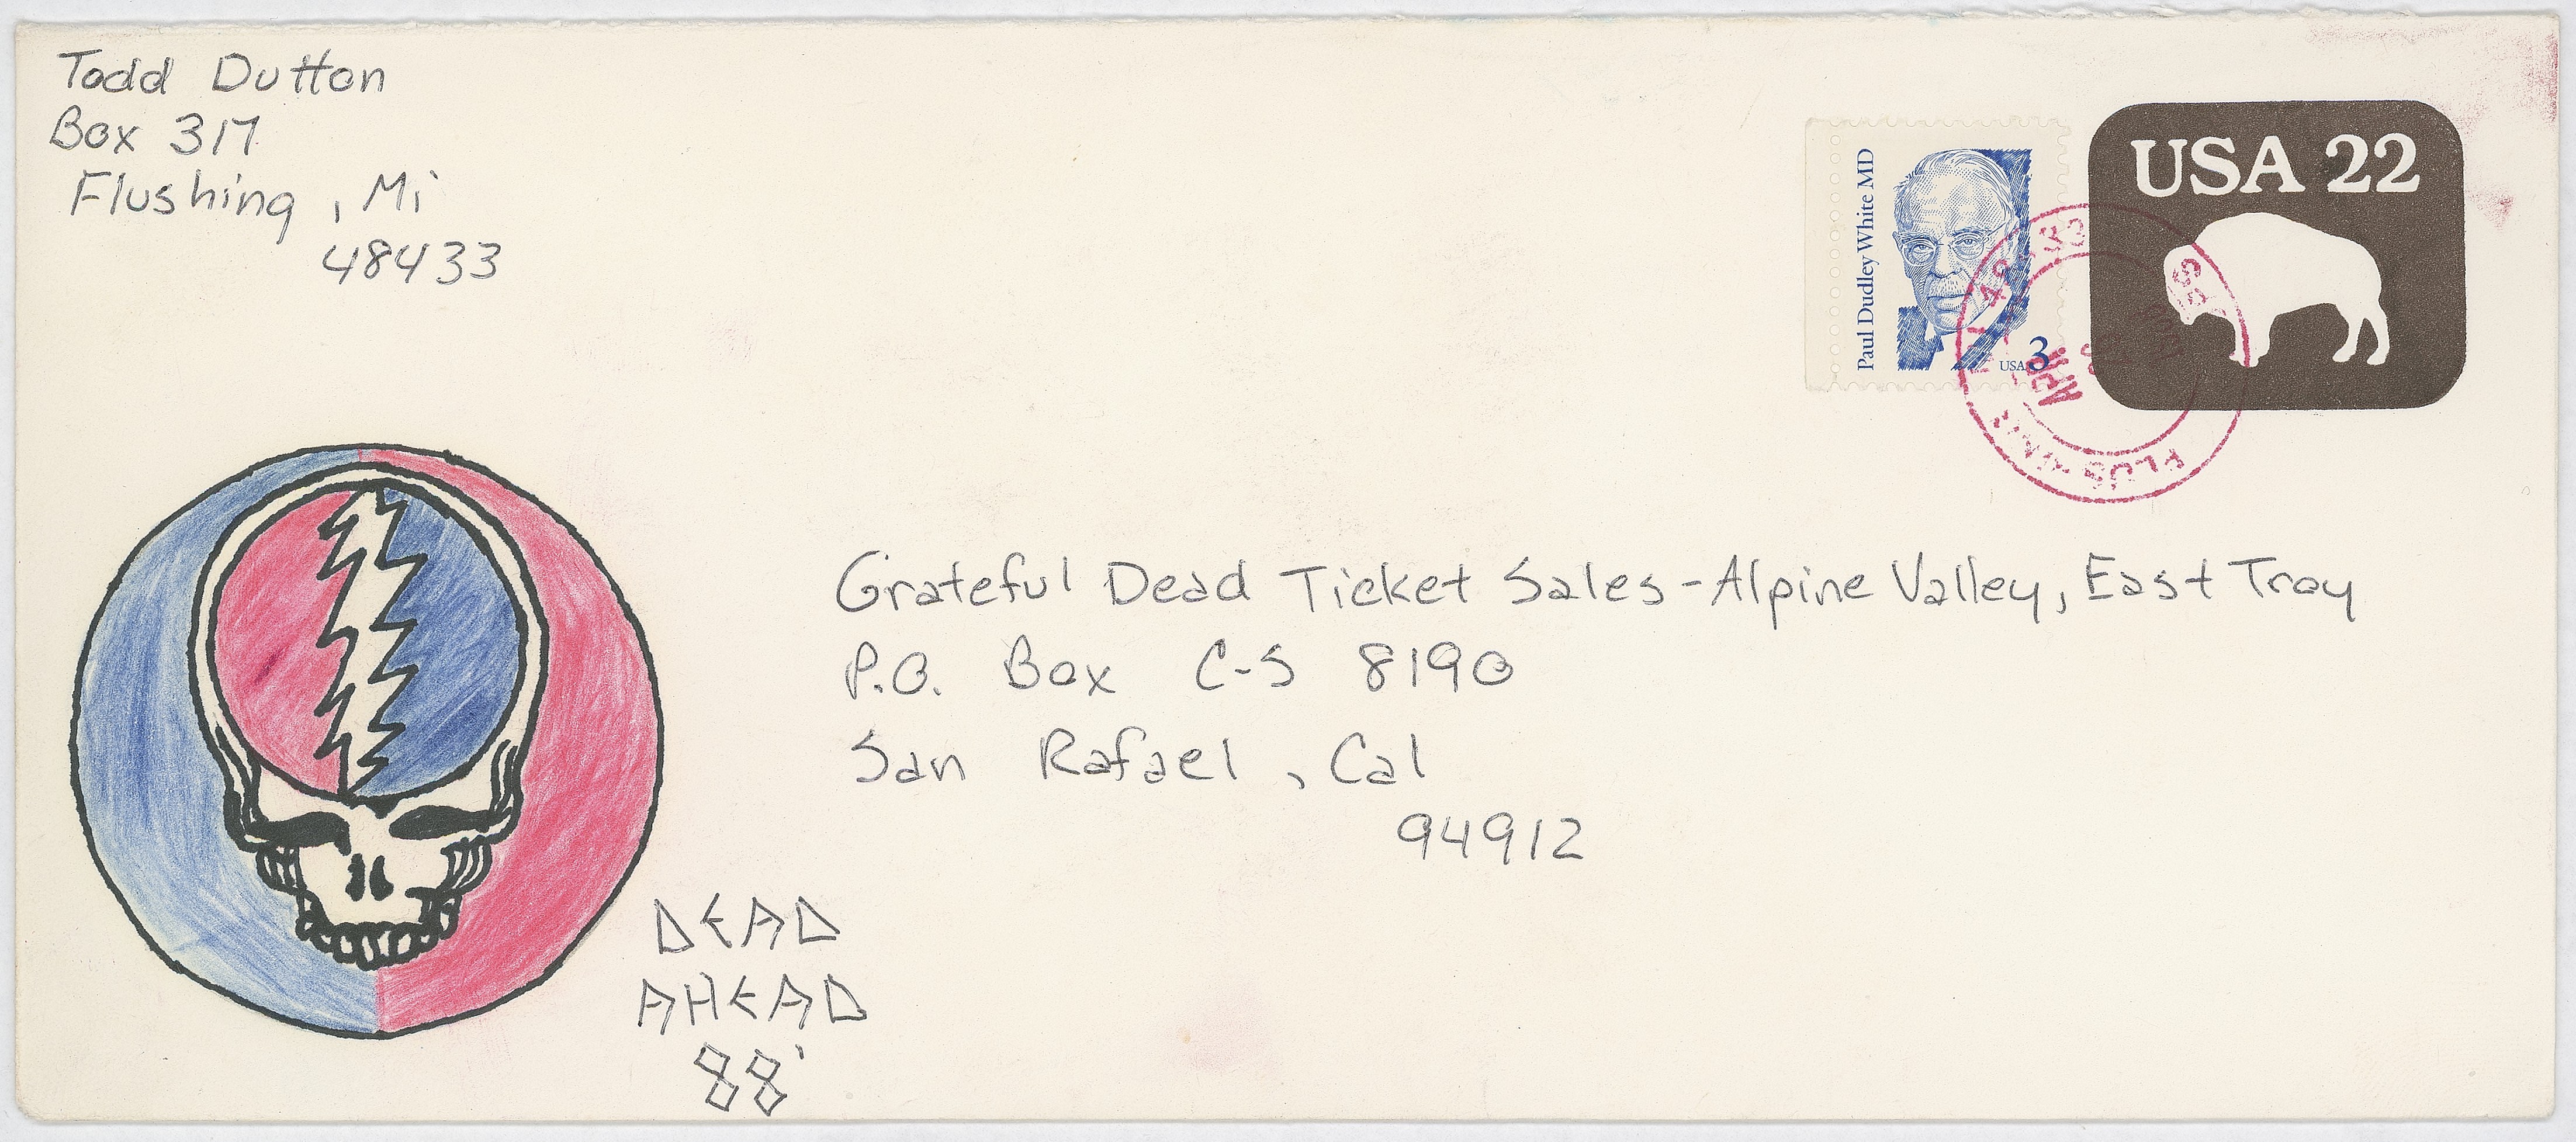 Todd Dutton
Box 317
Flushing, Mi
48433
Paul Dudley White MD
USA 3
USA 22
APR
Grateful Dead Ticket Sales - Alpine Valley, East Troy
P.O. Box C-S 8190
San Rafael, Cal
94912
DEAD
AHEAD
88'